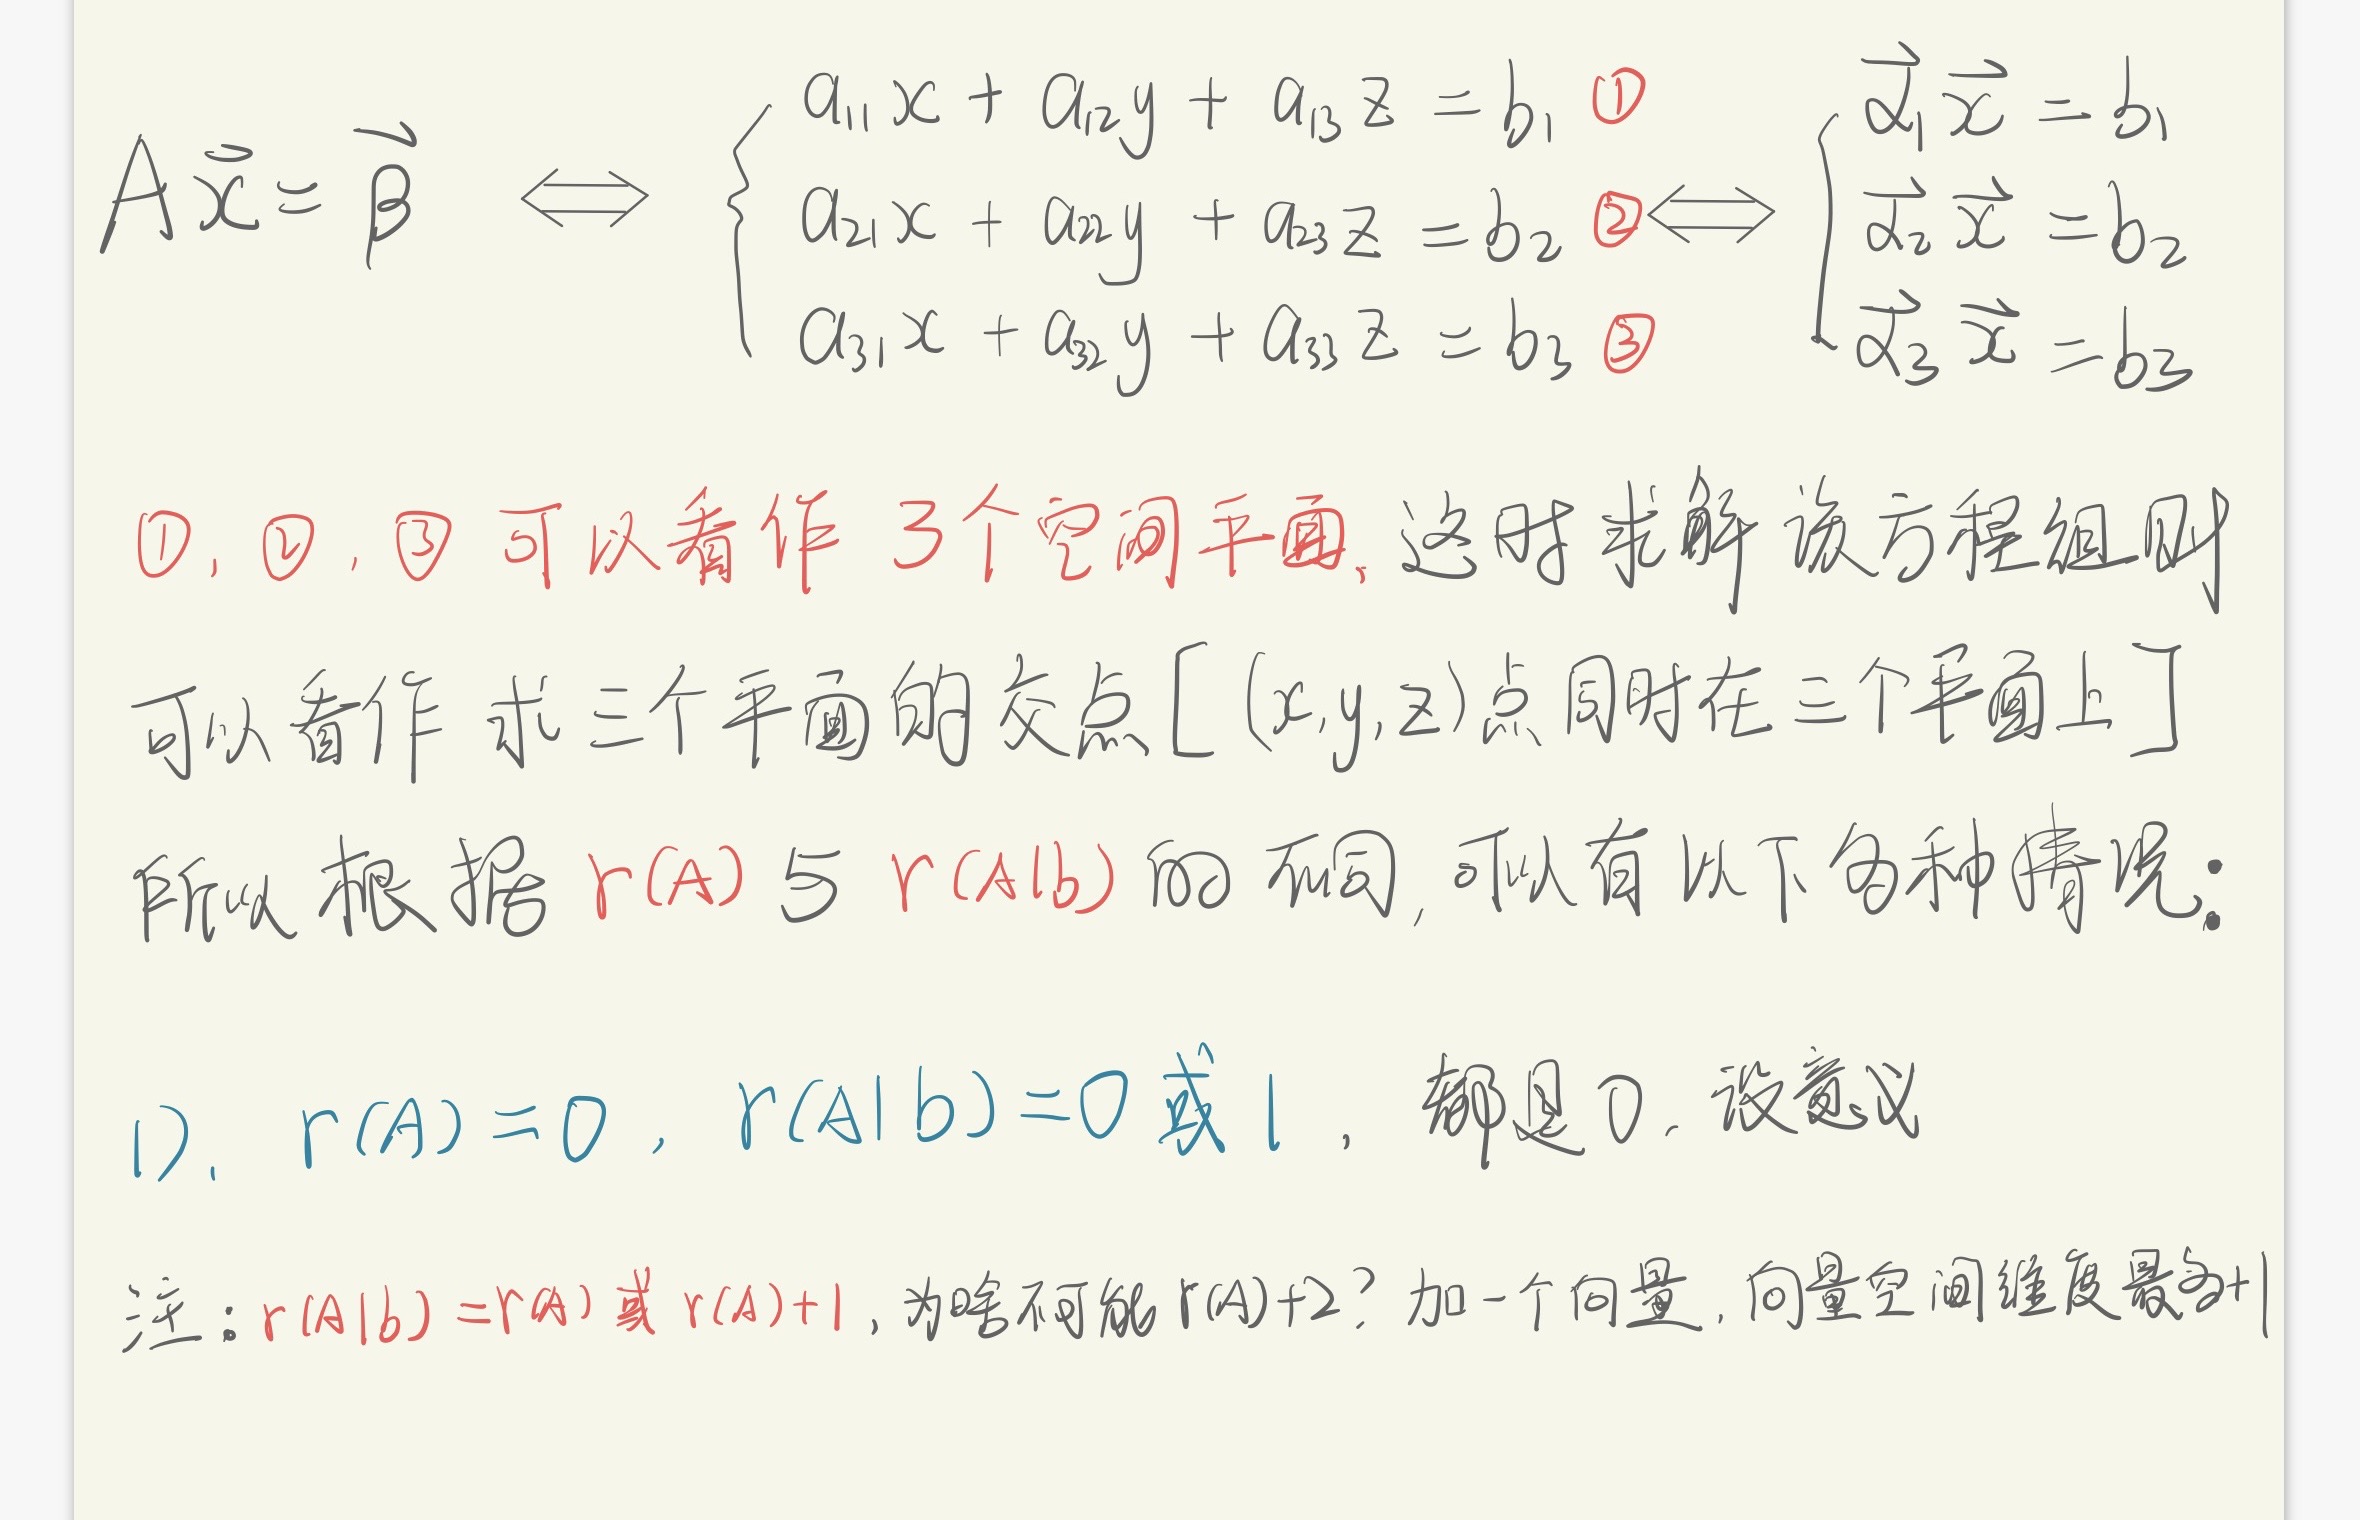 Ax⃗ = β⃗ ⟺ { a₁₁x + a₁₂y + a₁₃z = b₁ ① ⟺ { α⃗₁x⃗ = b₁
a₂₁x + a₂₂y + a₂₃z = b₂ ② α⃗₂x⃗ = b₂
a₃₁x + a₃₂y + a₃₃z = b₃ ③ α⃗₃x⃗ = b₃
①,②,③可以看作3个空间平面,这时求解该方程组时
可以看作 求三个平面的交点[(x,y,z)点同时在三个平面上]
所以根据r(A)与r(A|b)的不同,可以有以下各种情况:
1). r(A)=0, r(A|b)=0或1, 都是0,没意义
注:r(A|b)=r(A)或r(A)+1,为啥不可能r(A)+2?加一个向量,向量空间维度最多+1